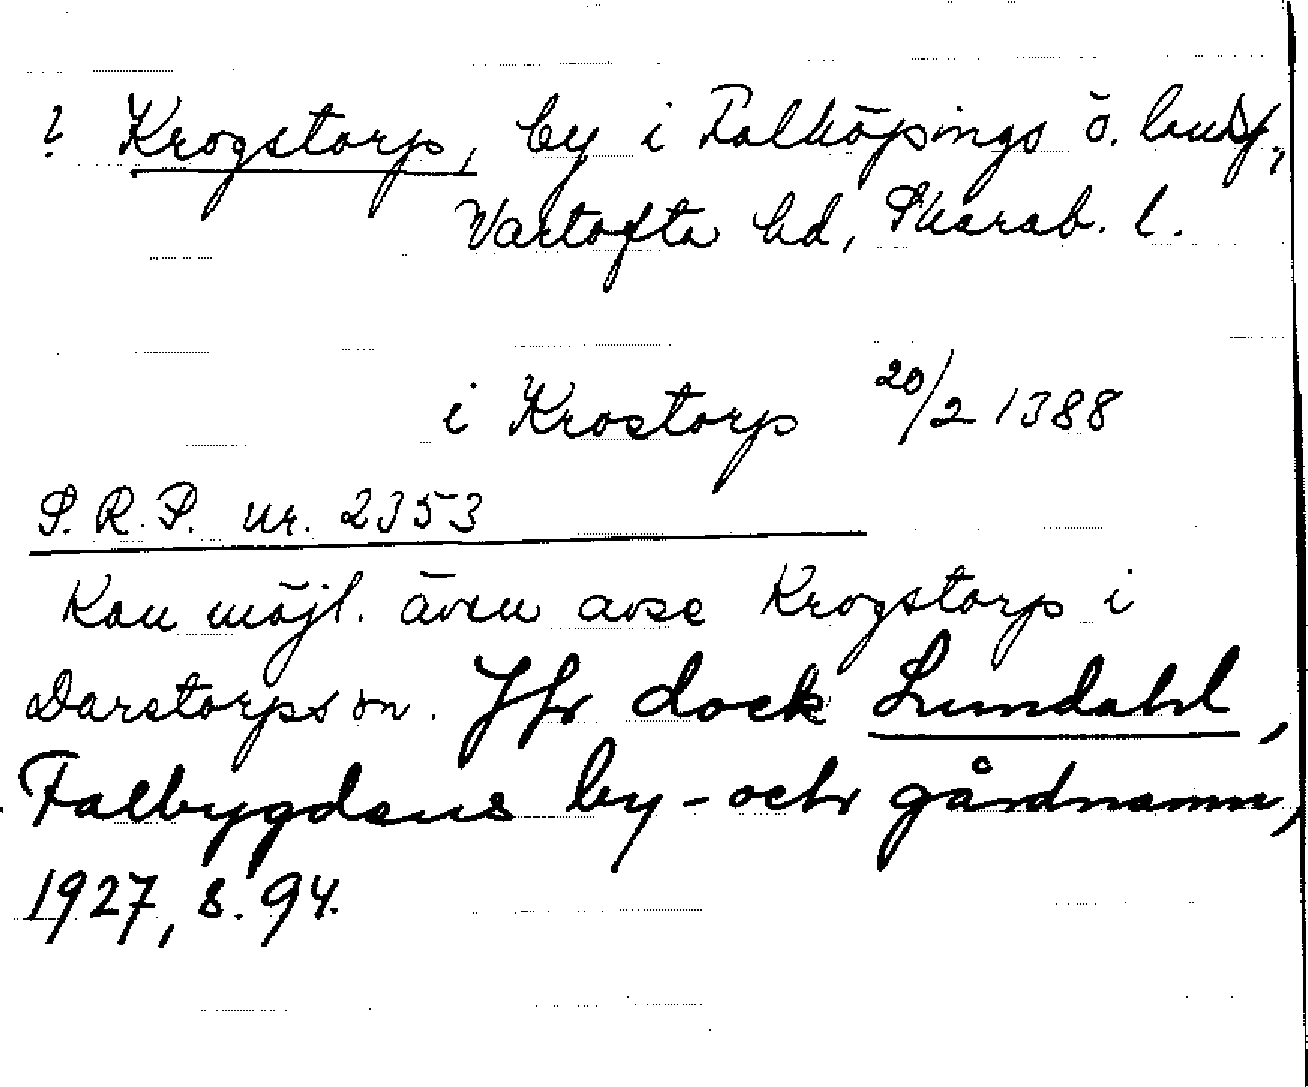 ? Krogstorp, by i Falköpings ö. landsf.,
Vartofta hd, Skarab. l.
i Krostorp 20/2 1388
S.R.P. nr. 2353
Kan möjl. även avse Krogstorp i
Darstorps sn. Jfr dock Lundahl,
Falbygdens by- och gårdnamn,
1927, s. 94.